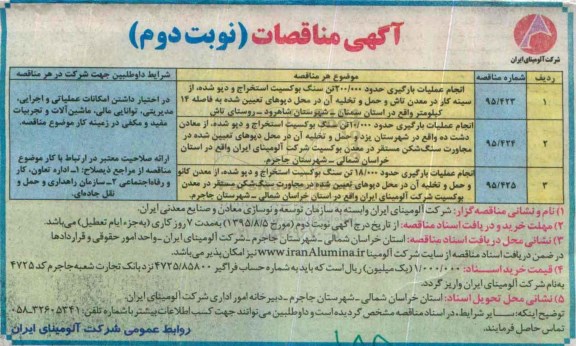 آگهی مناقصات (نوبت دوم)
شرکت آلومینای ایران
ردیف
شماره مناقصه
موضوع هر مناقصه
شرایط داوطلبین جهت شرکت در هر مناقصه
۱
۹۵/۴۲۳
انجام عملیات بارگیری حدود ۲۰۰/۰۰۰تن سنگ بوکسیت استخراج و دپو شده، از
سینه کار در معدن تاش و حمل و تخلیه آن در محل دپوهای تعیین شده به فاصله ۱۴
کیلومتر واقع در استان سمنان _ شهرستان شاهرود _ روستای تاش
۲
۹۵/۴۲۴
انجام عملیات بارگیری حدود ۱۰/۰۰۰تن سنگ بوکسیت استخراج و دپو شده، از معادن
دشت ده واقع در شهرستان یزد و حمل و تخلیه آن در محل دپوهای تعیین شده در
مجاورت سنگ‌شکن مستقر در معدن بوکسیت شرکت آلومینای ایران واقع در استان
خراسان شمالی _ شهرستان جاجرم.
۳
۹۵/۴۲۵
انجام عملیات بارگیری حدود ۱۸/۰۰۰ تن سنگ بوکسیت استخراج و دپو شده، از معدن کانو
و حمل و تخلیه آن در محل دپوهای تعیین شده در مجاورت سنگ‌شکن مستقر در معدن
بوکسیت شرکت آلومینای ایران واقع در استان خراسان شمالی _ شهرستان جاجرم.
در اختیار داشتن امکانات عملیاتی و اجرایی،
مدیریتی، توانایی مالی، ماشین‌آلات و تجربیات
مفید و مکفی در زمینه کار موضوع مناقصه.
ارائه صلاحیت معتبر در ارتباط با کار موضوع
مناقصه از مراجع ذیصلاح: ۱_ اداره تعاون، کار
و رفاه اجتماعی ۲_ سازمان راهداری و حمل و
نقل جاده‌ای.
۱) نام و نشانی مناقصه‌گزار: شرکت آلومینای ایران وابسته به سازمان توسعه و نوسازی معادن و صنایع معدنی ایران.
۲) مهلت خرید و دریافت اسناد مناقصه: از تاریخ درج آگهی نوبت دوم (مورخ ۱۳۹۵/۸/۵) به‌مدت ۷ روز کاری (به‌جزء ایام تعطیل) می‌باشد.
۳) نشانی محل دریافت اسناد مناقصه: استان خراسان شمالی _ شهرستان جاجرم _ شرکت آلومینای ایران _ واحد امور حقوقی و قراردادها
در ضمن دریافت اسناد مناقصه از سایت شرکت آلومینا www.iranAlumina.ir نیز امکان پذیر می‌باشد.
۴) قیمت خرید اسناد: ۱/۰۰۰/۰۰۰ (یک میلیون) ریال است که باید به شماره حساب فراگیر ۴۷۲۵/۸۵۸۰۰ نزد بانک تجارت شعبه جاجرم کد ۴۷۲۵
به‌نام شرکت آلومینای ایران واریز گردد.
۵) نشانی محل تحویل اسناد: استان خراسان شمالی _ شهرستان جاجرم _ دبیرخانه امور اداری شرکت آلومینای ایران.
توضیح اینکه: سایر شرایط، در اسناد مناقصه مشخص گردیده است و داوطلبین می‌توانند جهت کسب اطلاعات بیشتر با شماره تلفن: ۳۲۶۰۵۳۴۱-۰۵۸
تماس حاصل فرمایند.
روابط عمومی شرکت آلومینای ایران